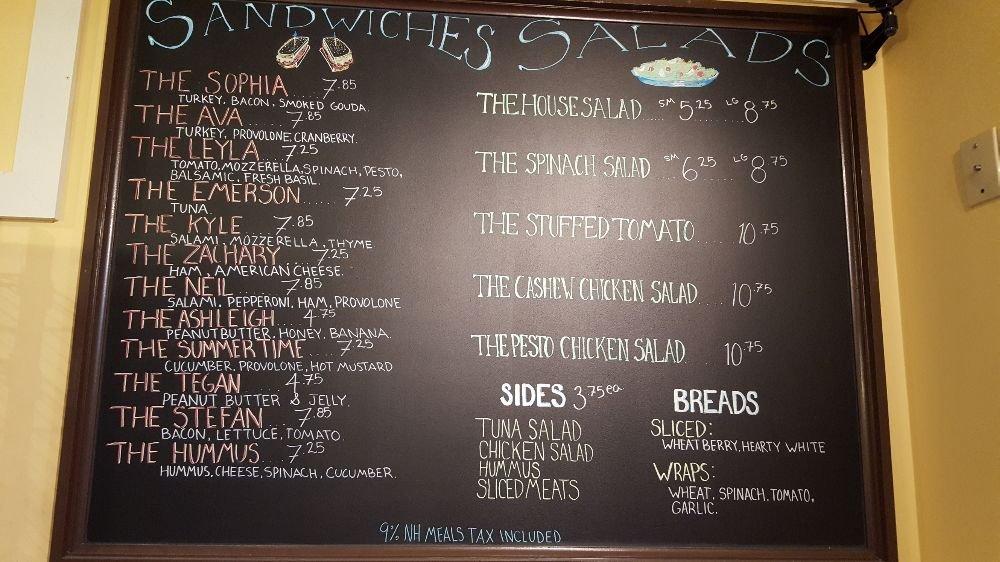 SANDWICHES
THE SOPHIA 7.85
TURKEY, BACON, SMOKED GOUDA
THE AVA 7.85
TURKEY, PROVOLONE, CRANBERRY
THE LEYLA 7.25
TOMATO, MOZZERELLA, SPINACH, PESTO,
BALSAMIC, FRESH BASIL
THE EMERSON 7.25
TUNA
THE KYLE 7.85
SALAMI, MOZZERELLA, THYME
THE ZACHARY 7.25
HAM, AMERICAN CHEESE
THE NEIL 7.85
SALAMI, PEPPERONI, HAM, PROVOLONE
THE ASHLEIGH 4.75
PEANUT BUTTER, HONEY, BANANA
THE SUMMERTIME 7.25
CUCUMBER, PROVOLONE, HOT MUSTARD
THE TEGAN 4.75
PEANUT BUTTER & JELLY
THE STEFAN 7.85
BACON, LETTUCE, TOMATO
THE HUMMUS 7.25
HUMMUS, CHEESE, SPINACH, CUCUMBER
SALADS
THE HOUSE SALAD SM 5.25 LG 8.75
THE SPINACH SALAD SM 6.25 LG 8.75
THE STUFFED TOMATO 10.75
THE CASHEW CHICKEN SALAD 10.75
THE PESTO CHICKEN SALAD 10.75
SIDES 3.75 ea
TUNA SALAD
CHICKEN SALAD
HUMMUS
SLICED MEATS
BREADS
SLICED:
WHEAT BERRY, HEARTY WHITE
WRAPS:
WHEAT, SPINACH, TOMATO,
GARLIC.
9% NH MEALS TAX INCLUDED